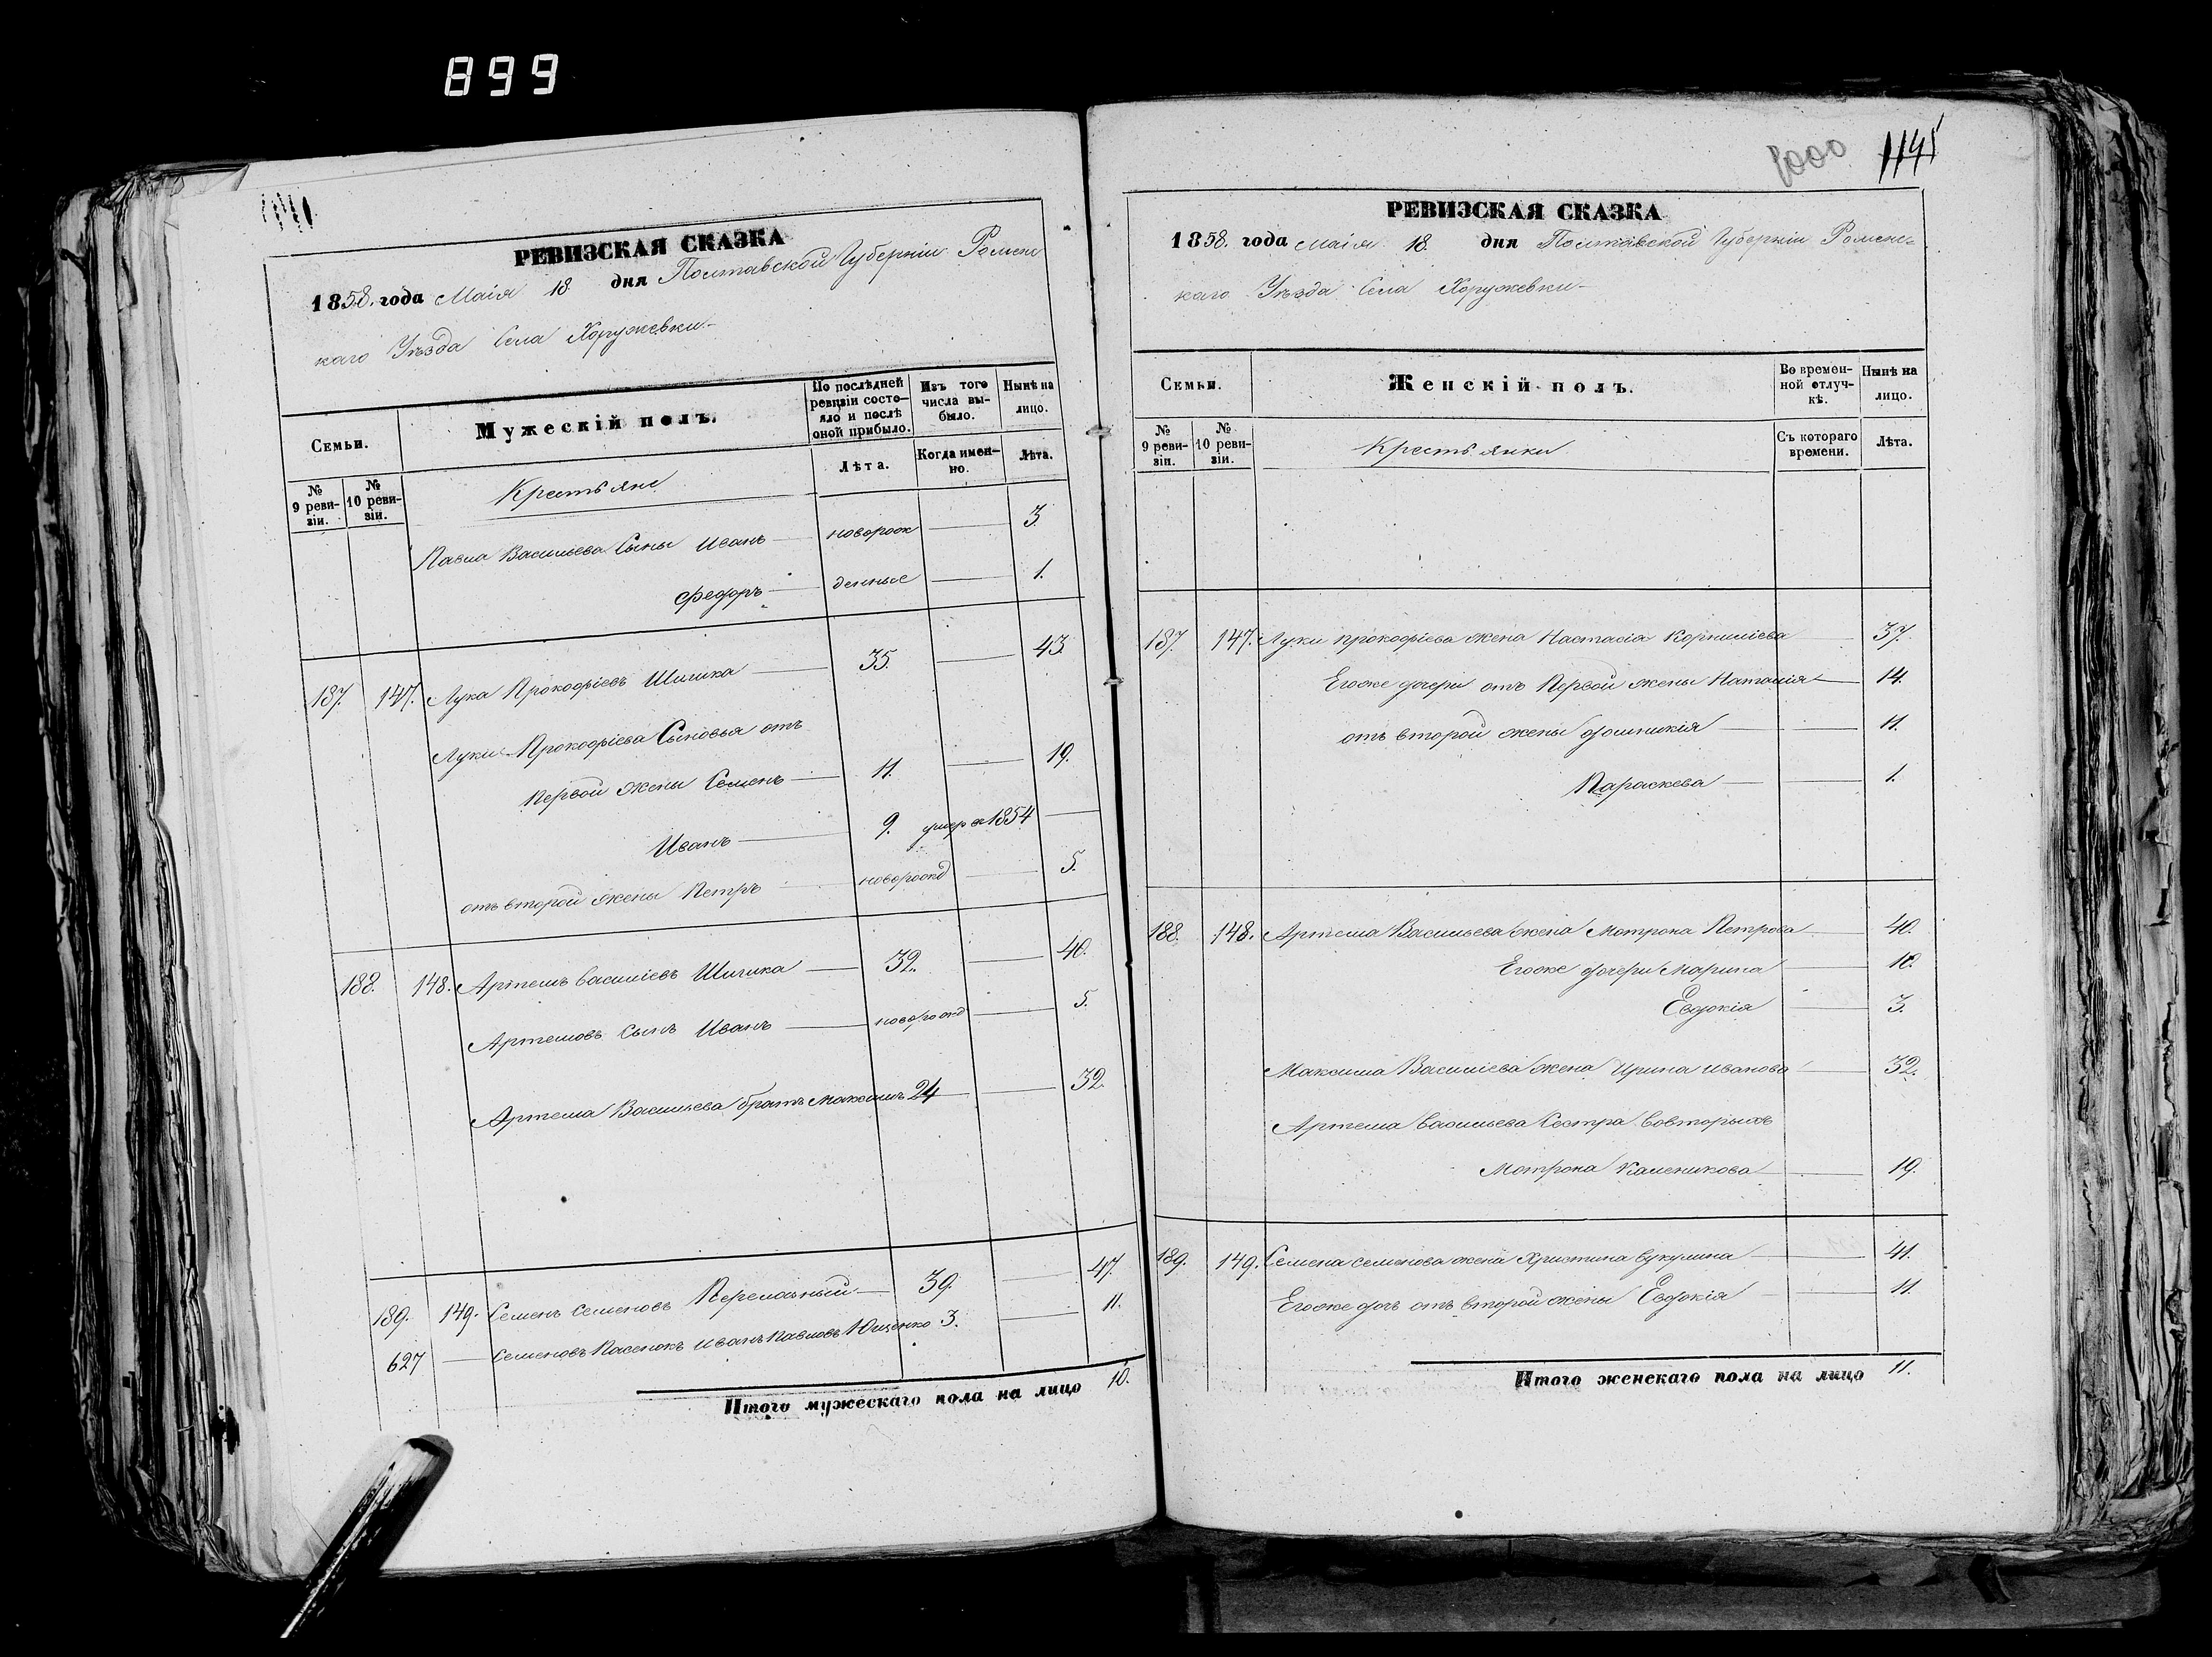 899
РЕВИЗСКАЯ СКАЗКА
1858. года Маія 18. дня Полтавской Губерніи Ромен
каго Уѣзда Села Хоружевки.
Семьи.
Мужескій полъ.
По послѣдней ревизіи состояло и послѣ оной прибыло.
Изъ того числа выбыло.
Нынѣ на лицо.
№ 9 ревизіи.
№ 10 ревизіи.
Крестьяне
Лѣта.
Когда именно.
Лѣта.
Павла Васильева Сыны Иванъ новорож 3.
Федоръ денные 1.
187. 147. Лука Прокофіевъ Шишка 35. 43.
Луки Прокофіева Сыновья отъ
Первой жены Семенъ 11. 19.
Иванъ 9. умер въ 1854
отъ второй жены Петръ новорожд 5.
188. 148. Артемъ Василіевъ Шишка 32. 40.
Артемовъ Сынъ Иванъ новорожд 5.
Артема Васильева братъ Максимъ 24 32.
189. 149. Семенъ Семеновъ 39. 47.
627 Семеновъ Пасенокъ Иванъ Павловъ Ющенко 3. 11.
Итого мужескаго пола на лицо 10.
1000 1145
РЕВИЗСКАЯ СКАЗКА
1858. года Маія 18. дня Полтавской Губерніи Ромен=
каго Уѣзда Села Хоружевки
Семьи.
Женскій полъ.
Во временной отлучкѣ.
Нынѣ на лицо.
№ 9 ревизіи.
№ 10 ревизіи.
Крестьянки
Съ котораго времени.
Лѣта.
187. 147. Луки Прокофіева жена Настасія Корниліева 37.
Егоже дочери отъ Первой жены Наталія 14.
отъ второй жены 11.
Параскева 1.
188. 148. Артема Васильева жена Мотрона Петрова 40.
Егоже дочери Марина
Евдокія 3.
Максима Василіева жена Ирина Иванова 32.
Артема Васильева Сестра вовторыхъ
Мотрона 19.
189. 149. Семена Семенова жена Христина Вукулина 41.
Егоже дочь отъ второй жены Евдокія 11.
Итого женскаго пола на лицо 11.